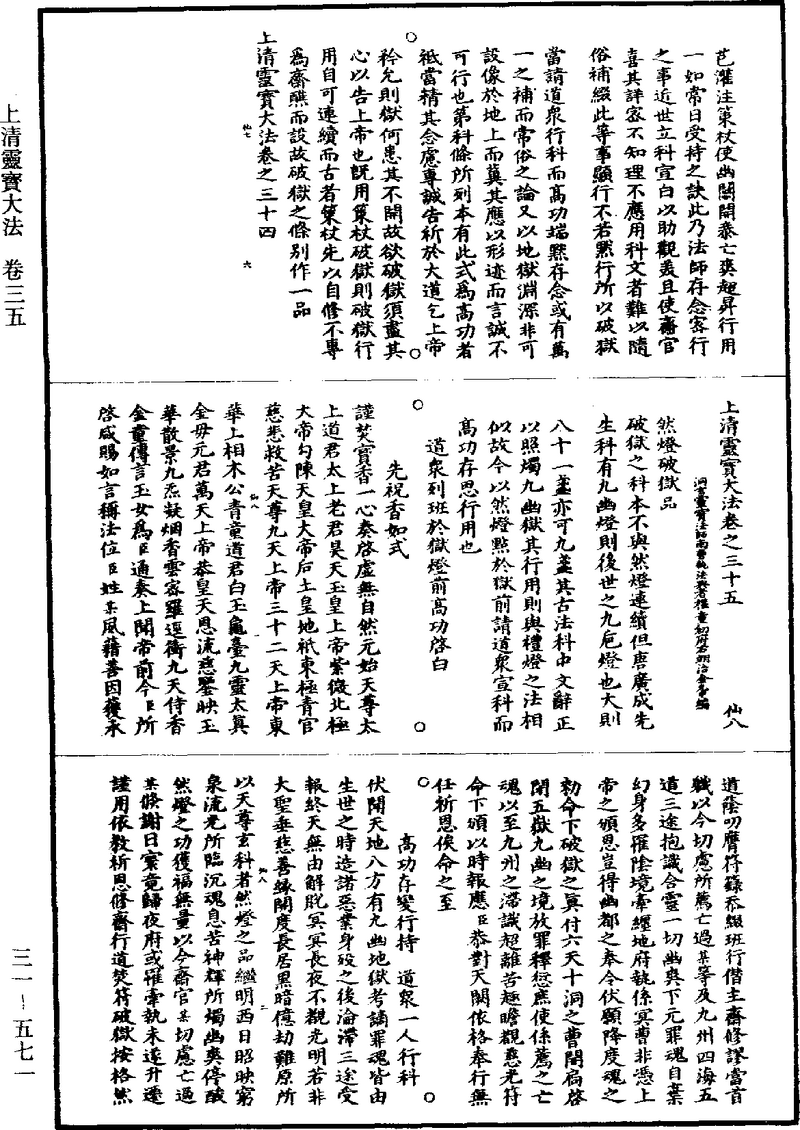 芭灌注策杖使幽關開泰亡爽超昇行用
一如常日受持之訣此乃法師存念密行
之事近世立科宣白以助觀羨且使齋官
喜其詳密不知理不應用科文者難以隨
俗補綴此等事顯行不若默行所以破獄
當請道衆行科而高功端默存念或有萬
一之補而常俗之論又以地獄淵深非可
設像於地上而冀其應以形迹而言誠不
可行也第科條所列本有此式為高功者
祇當精其念慮專誠告祈於大道乞上帝
衿允則獄何患其不開故欲破獄須盡其
心以告上帝也既用策杖破獄則破獄行
用自可連續而古者策杖先以自修不專
為齋醮而設故破獄之條别作一品
上清靈寶大法卷之三十四
仙七
六
上清靈寶大法卷之三十五
仙八
洞玄靈寶法師南曹執法典者權童初府右翊治金允中編
然燈破獄品
破獄之科本不與然燈連續但唐廣成先
生科有九幽燈則後世之九巵燈也大則
八十一盞亦可九盞其古法科中文辭正
以照燭九幽獄其行用則與禮燈之法相
似故今以然燈點於獄前請道衆宣科而
高功存思行用也
道衆列班於獄燈前高功啓白
先祝香如式
謹焚寶香一心奏啓虛無自然元始天尊太
上道君太上老君昊天玉皇上帝紫微北極
大帝勾陳天皇大帝后土皇地祇東極青宮
慈悲救苦天尊九天上帝三十二天上帝東
華上相木公青童道君白玉龜臺九靈太真
金母元君萬天上帝恭望天恩流慈鑒映玉
華散景九炁凝烟香雲密羅逕衝九天侍香
金童傳言玉女為臣通奏上聞帝前令臣所
啓咸賜如言稱法位臣姓某夙藉善因獲承
道蔭叨膺符籙忝綴班行僭主齋修謬當首
職以今切慮所薦亡過某等及九州四海五
道三途抱識含靈一切幽爽下元罪魂自棄
幻身多罹陰境牽纏地府執係冥曹非憑上
帝之頒恩豈得幽都之奉令伏願降度魂之
勑命下破獄之真符六天十洞之曹開扃啓
閉五獄九幽之境放罪釋愆庶使係薦之亡
魂以至九州之滯識超離苦趣瞻覩慈光符
命下頒以時報應臣恭對天闕依格奉行無
任祈恩俟命之至
高功存變行持 道衆一人行科
伏聞天地八方有九幽地獄考謫罪魂皆由
生世之時造諸惡業身殁之後淪滯三途受
報終天無由解脫冥冥長夜不覩光明若非
大聖垂慈善緣開度長居黑暗億劫難原所
以天尊玄科者然燈之品繼明西日照映窮
泉流光所臨沉魂息苦神輝所燭幽爽停酸
然燈之功獲福無量以今齋官某切慮亡過
某倏謝日寰竟歸夜府或罹牽執未遂升遷
謹用依教祈恩修齋行道焚符破獄按格然
仙八
二
上清靈寶大法 卷三五
三一－五七一